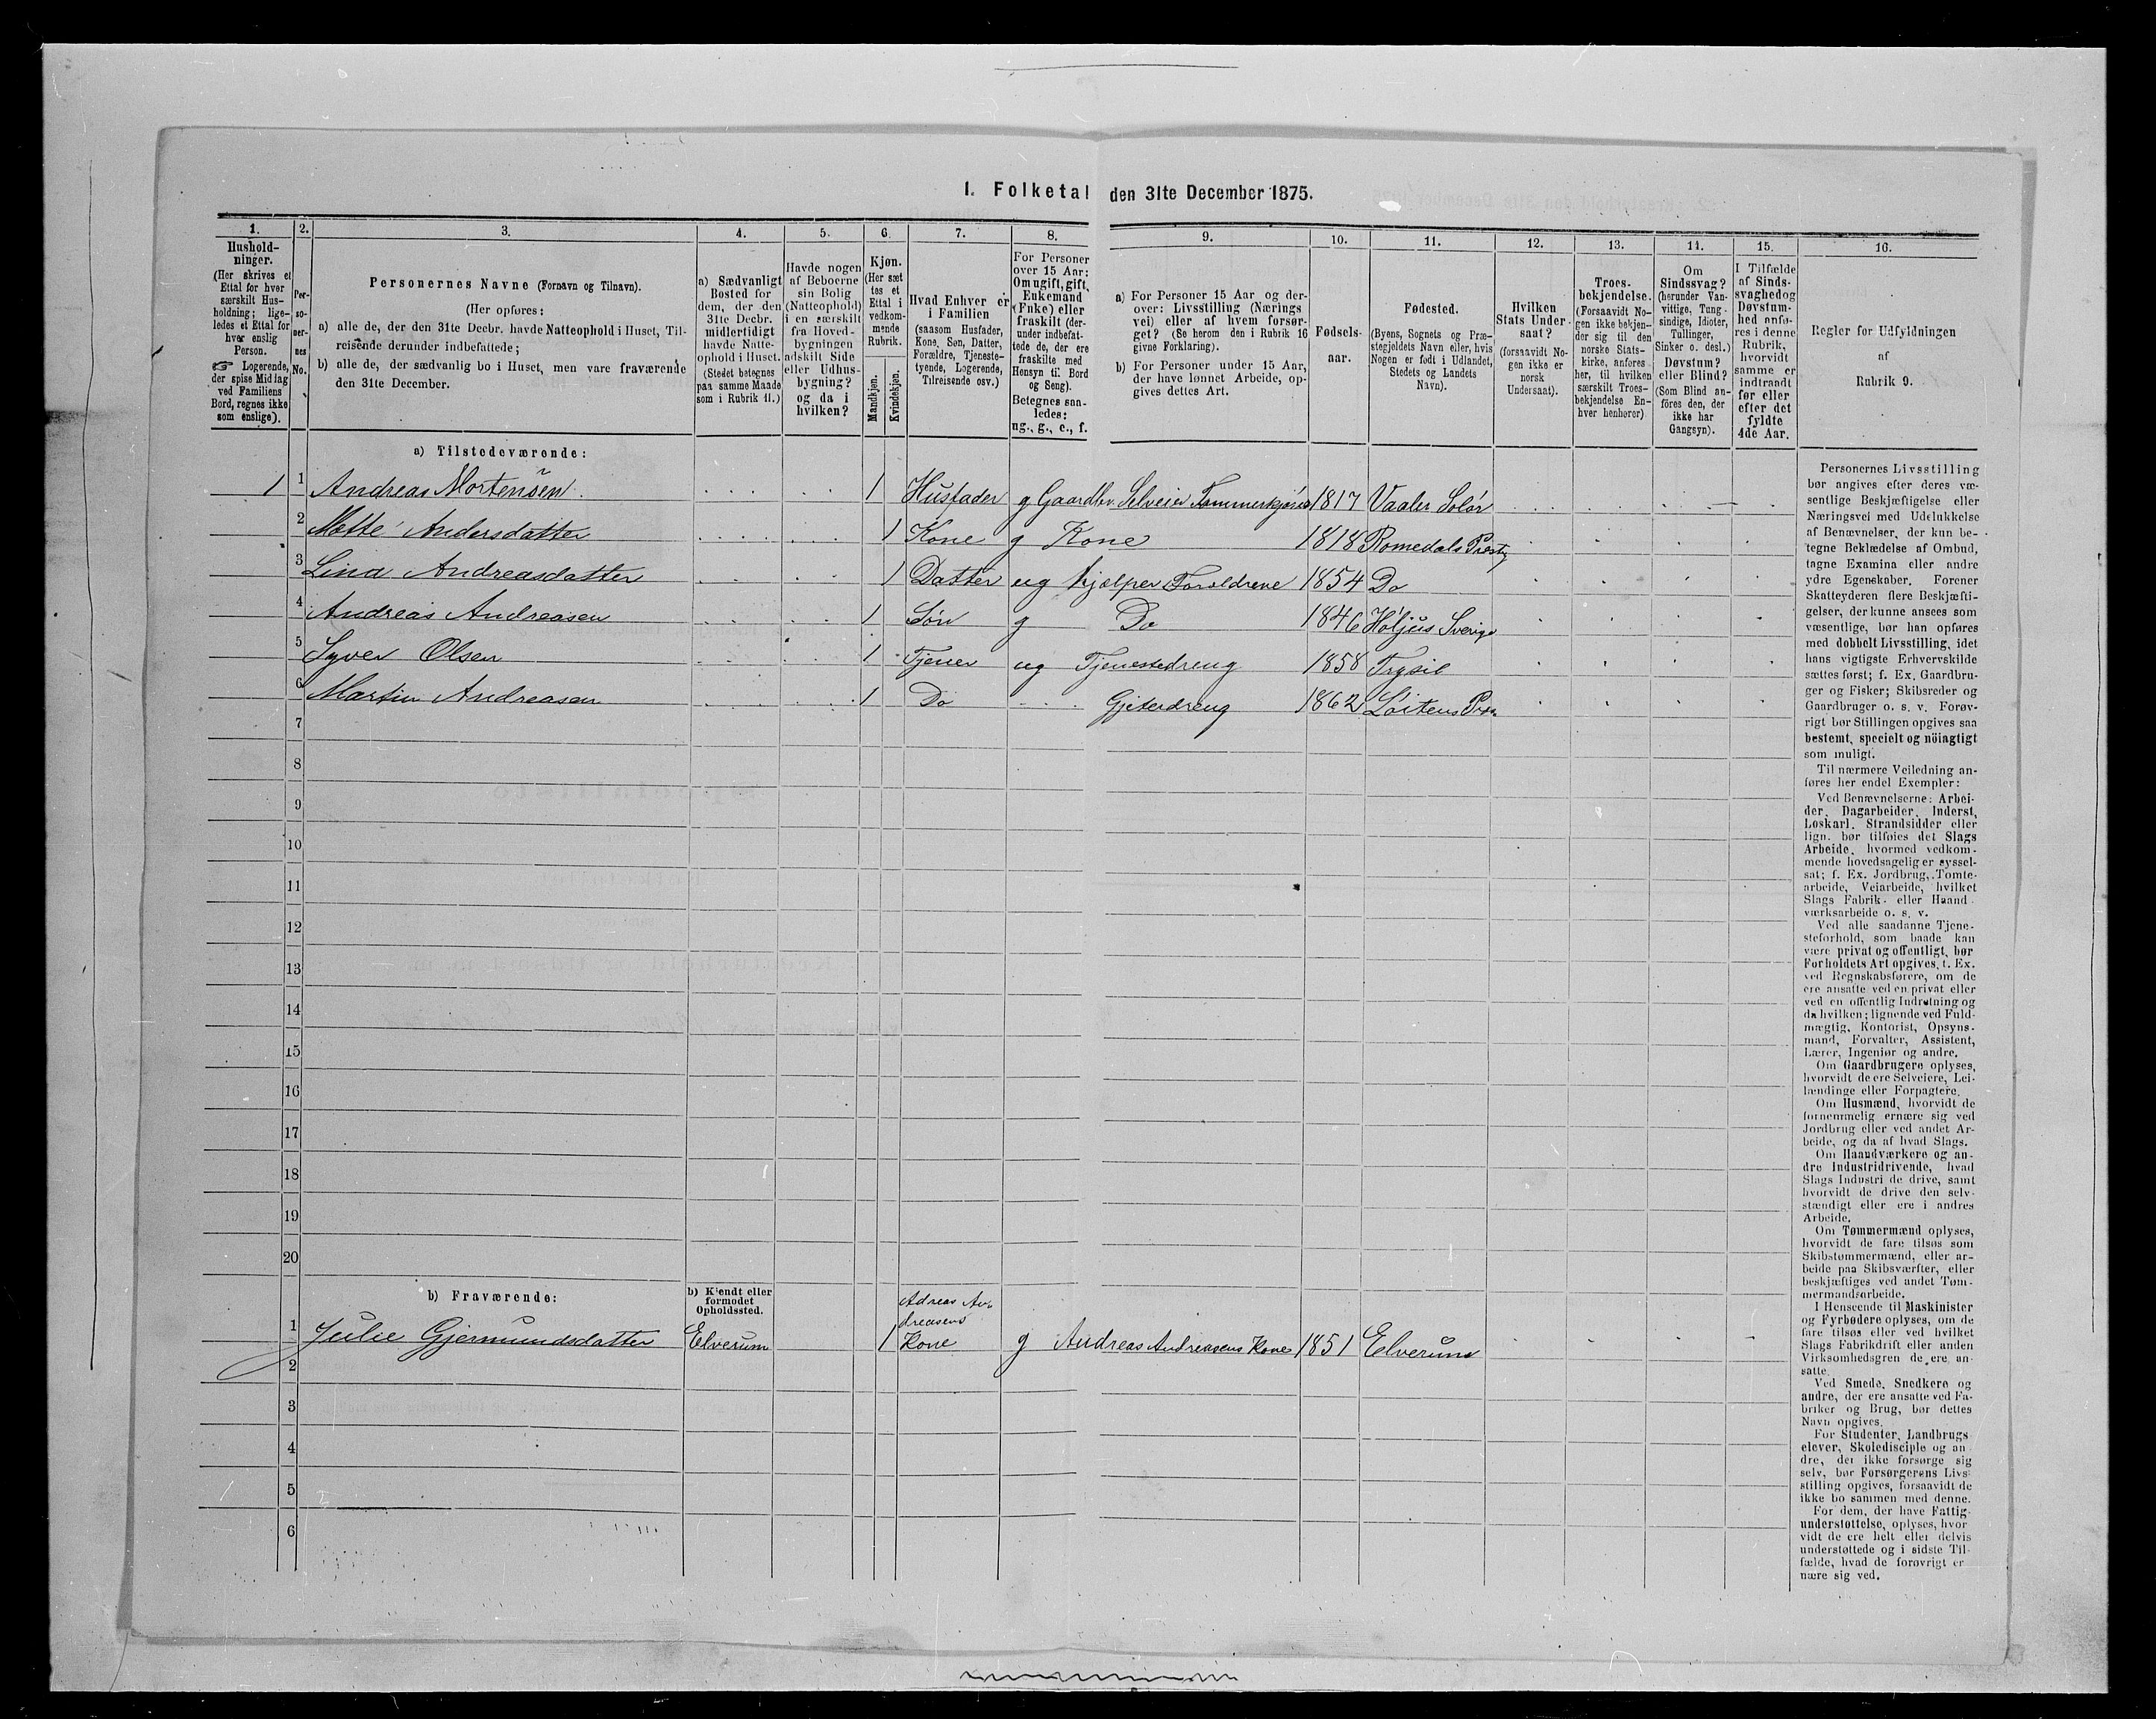 1. Folketal den 31te December 1875.
1.
Hushold-
ninger.
(Her skrives et
Ettal for hver
særskilt Hus-
holdning; lige-
ledes et Ettal for
hver enslig
Person.
☞ Logerende,
der spise Middag
ved Familiens
Bord, regnes ikke
som enslige).
2.
Per-
so-
ner-
nes
No.
3.
Personernes Navne (Fornavn og Tilnavn).
(Her opføres:
a) alle de, der den 31te Decbr. havde Natteophold i Huset, Til-
reisende derunder indbefattede;
b) alle de, der sædvanlig bo i Huset, men vare fraværende
den 31te December.
4.
a) Sædvanligt
Bosted for
dem, der den
31te Decbr.
midlertidigt
havde Natte-
ophold i Huset.
(Stedet betegnes
paa samme Maade
som i Rubrik 11.)
5.
Havde nogen
af Beboerne
sin Bolig
(Natteophold)
i en særskilt
fra Hoved-
bygningen
adskilt Side
eller Udhus-
bygning?
og da i
hvilken?
6.
Kjøn.
(Her sæt
tes et
Ettal i
vedkom-
mende
Rubrik.
Mandkjøn.
Kvindekjøn.
7.
Hvad Enhver er
i Familien
(saasom Husfader,
Kone, Søn, Datter,
Forældre, Tjeneste-
tyende, Logerende,
Tilreisende osv.)
8.
For Personer
over 15 Aar:
Om ugift, gift,
Enkemand
(Enke) eller
fraskilt (der-
under indbefat-
tede de, der ere
fraskilte med
Hensyn til Bord
og Seng).
Betegnes saa-
ledes:
ug., g., e., f.
9.
a) For Personer 15 Aar og der-
over: Livsstilling (Nærings
vei) eller af hvem forsør-
get? (Se herom den i Rubrik 16
givne Forklaring).
b) For Personer under 15 Aar,
der have lønnet Arbeide, op-
gives dettes Art.
10.
Fødsels-
aar.
11.
Fødested.
(Byens, Sognets og Præ-
stegjeldets Navn eller, hvis
Nogen er født i Udlandet,
Stedets og Landets
Navn).
12.
Hvilken
Stats Under-
saat?
(forsaavidt No-
gen ikke er
norsk
Undersaat).
13.
Troes-
bekjendelse.
(Forsaavidt No-
gen ikke bekjen-
der sig til den
norske Stats-
kirke, anføres
her, til hvilken
særskilt Troes-
bekjendelse En-
hver henhører)
14.
Om
Sindssvag?
(herunder Van-
vittige, Tung-
sindige, Idioter,
Tullinger,
Sinker o. desl.)
Døvstum?
eller Blind?
(Som Blind an-
føres den, der
ikke har
Gangsyn).
15.
I Tilfælde
af Sinds-
svaghed og
Døvstum-
hed anfø-
res i denne
Rubrik,
hvorvidt
samme er
indtraadt
før eller
efter det
fyldte
4de Aar.
16.
Regler for Udfyldningen
af
Rubrik 9.
a) Tilstedeværende:
1 1 Andreas Mortensen 1 Husfader g Gaardbr. Selveier Tømmerkjører 1817 Vaaler Solør
2 Mette Andersdatter 1 Kone g Kone 1818 Romedals Prestg
3 Lina Andreasdatter 1 Datter ug hjælper Foreldrene 1854 Do
4 Andreas Andreasen 1 Søn g Do 1846 Høljus Sverige
5 Syver Olsen 1 Tjener ug Tjenestedreng 1858 Trysil
6 Martin Andreasen 1 Do Gjeterdreng 1862 Løitens
7
8
9
10
11
12
13
14
15
16
17
18
19
20
b) Fraværende:
b) Kjendt eller
formodet
Opholdssted.
Adreas An-
dreasens
1 Julie Gjermundsdatter Elverum 1 Kone g Andreas Andreasens Kone 1851 Elverum
2
3
4
5
6
Personernes Livsstilling
bør angives efter deres væ-
sentlige Beskjæftigelse eller
Næringsvei med Udelukkelse
af Benævnelser, der kun be-
tegne Beklædelse af Ombud,
tagne Examina eller andre
ydre Egenskaber. Forener
Skatteyderen flere Beskjæfti-
gelser, der kunne ansees som
væsentlige, bør han opføres
med dobbelt Livsstilling, idet
hans vigtigste Erhvervskilde
sættes først; f. Ex. Gaardbru-
ger og Fisker; Skibsreder og
Gaardbruger o. s. v. Forøv-
rigt bør Stillingen opgives saa
bestemt, specielt og nöiagtigt
som muligt.
Til nærmere Veiledning an-
føres her endel Exempler:
Ved Benævnelserne: Arbei-
der, Dagarbeider, Inderst,
Løskarl, Strandsidder eller
lign. bør tilføies det Slags
Arbeide, hvormed vedkom-
mende hovedsagelig er syssel-
sat; f. Ex. Jordbrug, Tomte-
arbeide, Veiarbeide, hvilket
Slags Fabrik- eller Haand-
værksarbeide o. s. v.
Ved alle saadanne Tjene-
steforhold, som baade kan
være privat og offentligt, bør
Forholdets Art opgives, f. Ex.
ved Regnskabsførere, om de
ere ansatte ved en privat eller
ved en offentlig Indretning og
da hvilken; lignende ved Fuld-
mægtig, Kontorist, Opsyns-
mand, Forvalter, Assistent,
Lærer, Ingeniør og andre.
Om Gaardbrugere oplyses,
hvorvidt de ere Selveiere, Lei-
lændinge eller Forpagtere.
Om Husmænd, hvorvidt de
fornemmelig ernære sig ved
Jordbrug eller ved andet Ar-
beide, og da af hvad Slags.
Om Haandværkere og an-
dre Industridrivende, hvad
Slags Industri de drive, samt
hvorvidt de drive den selv-
stændigt eller ere i andres
Arbeide.
Om Tømmermænd oplyses,
hvorvidt de fare tilsøs som
Skibstømmermænd, eller ar-
beide paa Skibsværfter, eller
beskjæftiges ved andet Tøm-
mermandsarbeide.
I Henseende til Maskinister
og Fyrbødere oplyses, om de
fare tilsøs eller ved hvilket
Slags Fabrikdrift eller anden
Virksomhedsgren de ere an-
satte.
Ved Smede, Snedkere og
andre, der ere ansatte ved Fa-
briker og Brug, bør dettes
Navn opgives.
For Studenter, Landbrugs-
elever, Skoledisciple og an-
dre, der ikke forsørge sig
selv, bør Forsørgerens Livs-
stilling opgives, forsaavidt de
ikke bo sammen med denne.
For dem, der have Fattig-
understøttelse, oplyses, hvor
vidt de ere helt eller delvis
understøttede og i sidste Til-
fælde, hvad de forøvrigt er
nære sig ved.